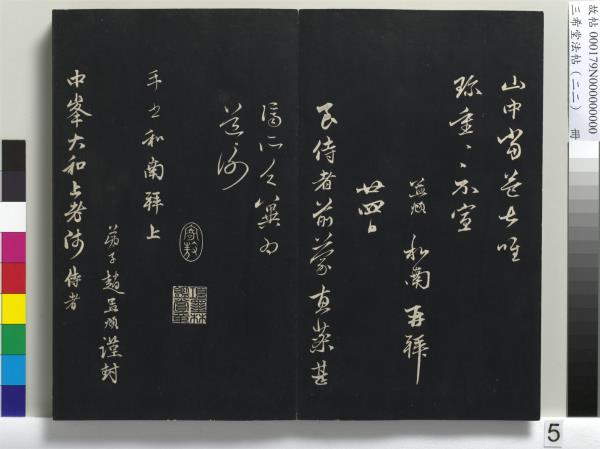 山中當益甚唯
珍重珍重不宣
孟頫和南再拜
廿四日
以侍者前蒙惠藥甚
濟所乏冀為
道謝
手書和南拜上
弟子趙孟頫謹封
中峯大和上老師侍者
故帖 000179N000000000
三希堂法帖（二二） 冊
5